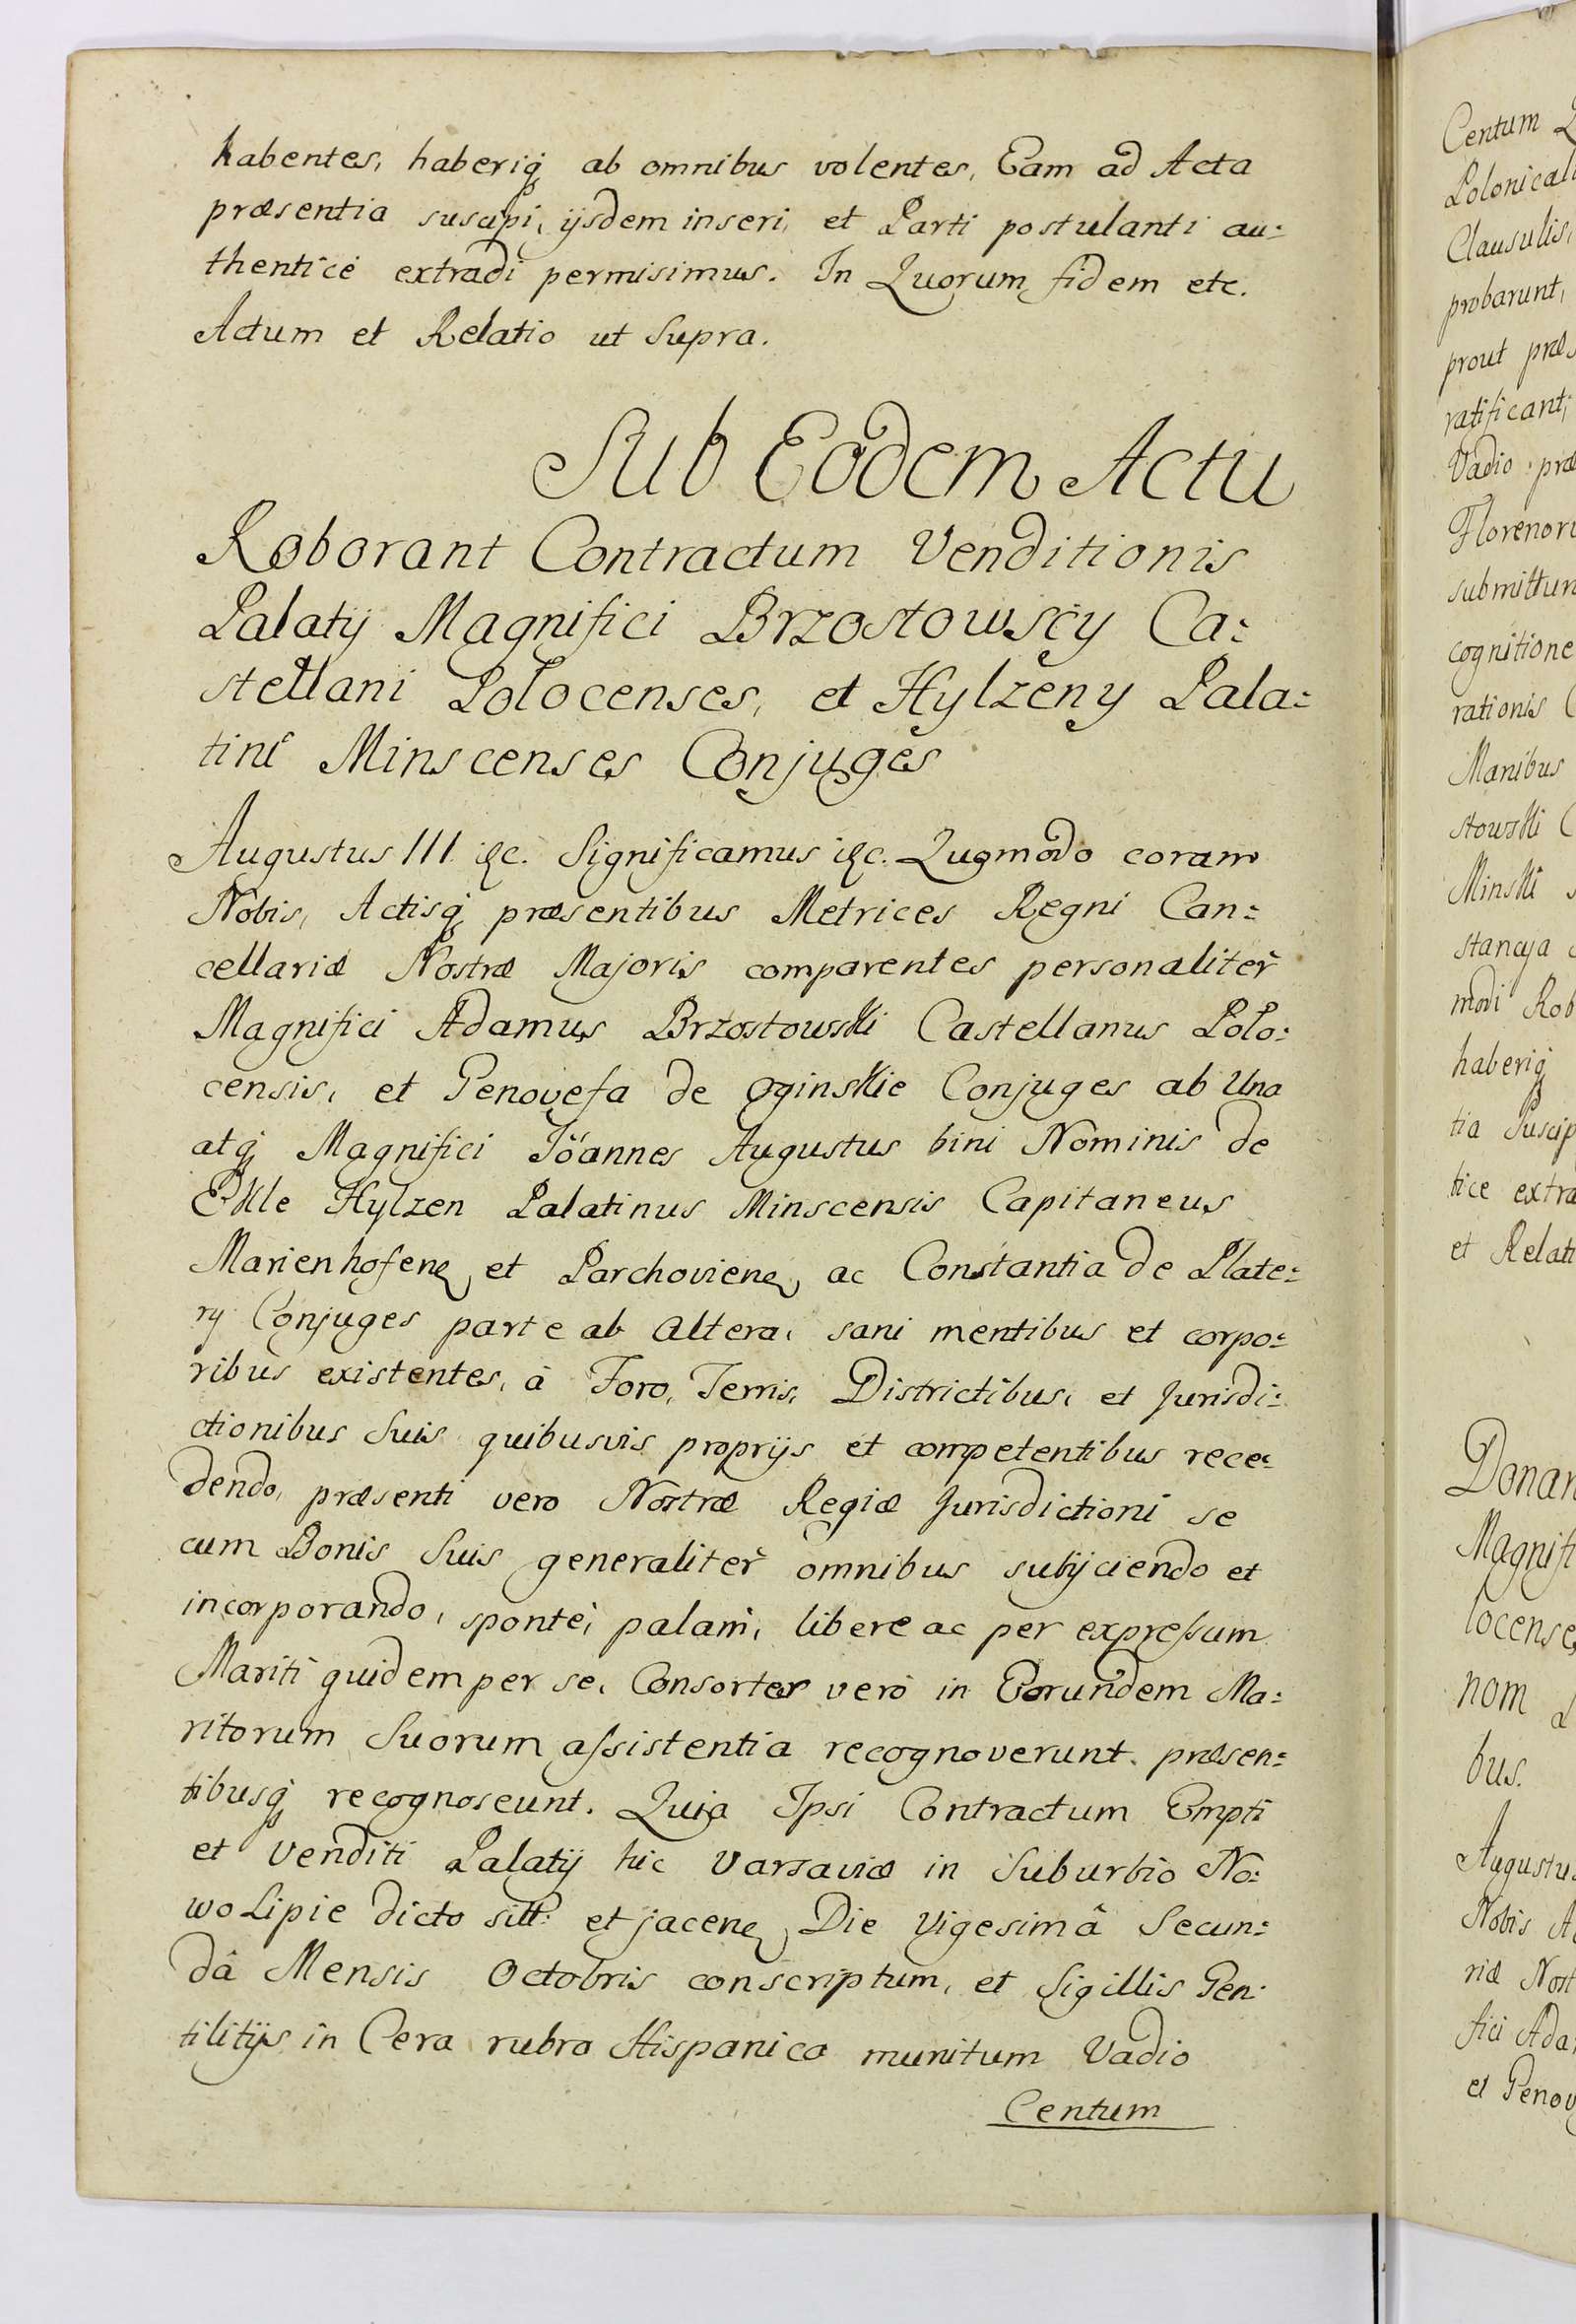 habentes, haberiq; ab omnibus volentes, Eam ad Acta
præsentia suscipi, ijsdem inseri, et Parti postulanti au=
thenticè extradi permisimus. In Quorum fidem etc.
Actum et Relatio ut Supra.
Sub Eodem Actu
Roborant Contractum Venditionis
Palatij Magnifici Brzostowscÿ Ca=
stellani Polocenses, et Hylzeny Pala=
tini Minscenses Conjuges
Augustus III. &c. Significamus &c. Quomodo coram
Nobis, Actisq; præsentibus Metrices Regni Can=
cellariæ Nostræ Majoris comparentes personaliter
Magnifici Adamus Brzostowski Castellanus Polo=
censis, et Genovefa de Oginskie Conjuges ab Una
atq; Magnifici Joannes Augustus bini Nominis de
Ekle Hylzen Palatinus Minscensis Capitaneus
Marienhofen et Parchovien ac Constantia de Plate=
rÿ Conjuges parte ab altera, sani mentibus et corpo=
ribus existentes, à Foro, Terris, Districtibus, et Jurisdi=
ctionibus Suis quibusvis proprijs et competentibus rece=
dendo, præsenti vero Nostræ Regiæ Jurisdictioni se
cum Bonis Suis generaliter omnibus subijciendo et
incorporando, spontè, palam, libere ac per expressum
Mariti quidem per se, Consortes verò in Eorundem Ma=
ritorum Suorum assistentia recognoverunt. præsen=
tibusq; recognoscunt. Quia Ipsi Contractum Empti
et Venditi Palatij hic Varsaviæ in Suburbio No=
woLipie dicto sitt: et jacen Die Vigesimâ Secun=
dâ Mensis Octobris conscriptum, et Sigillis Gen=
tilitijs in Cera rubra Hispanica munitum Vadio
Centum
Centum
Clausulis,
probarunt,
prout
ratificant,
Vadio
submittun
cognitione
rationis
Manibus
Minski
haberiq;
tice extra
et Relati
Donan
Magnifi
locenses
nom
bus.
Augustus
Nobis
riæ Nost
fici Ada
et Genov